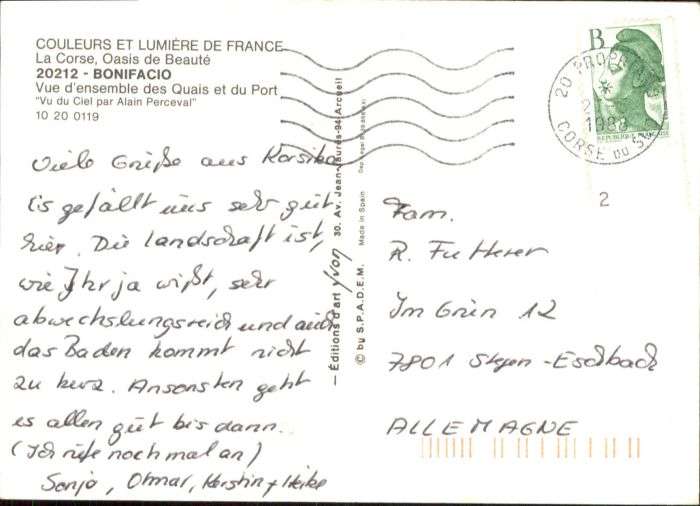 COULEURS ET LUMIÈRE DE FRANCE
La Corse, Oasis de Beauté
20212 - BONIFACIO
Vue d'ensemble des Quais et du Port
"Vu du Ciel par Alain Perceval"
10 20 0119
Viele Grüße aus Korsika
Es gefällt uns sehr gut
hier. Die Landschaft ist,
wie Ihr ja wißt, sehr
abwechslungsreich und auch
das Baden kommt nicht
zu kurz. Ansonsten geht
es allen gut bis dann..
(Ich rufe nochmal an)
Sonja, Otmar, Kerstin + Heike
— Éditions d'art yvon 30. Av. Jean-Jaurès-94 Arcueil
© by S.P.A.D.E.M. Made in Spain
B
REPUBLIQUE FRANÇAISE
20 PROPRIANO
1988
CORSE DU SUD
2
Fam.
R. Futterer
Im Grün 12
7801 Stegen-Eschbach
ALLEMAGNE